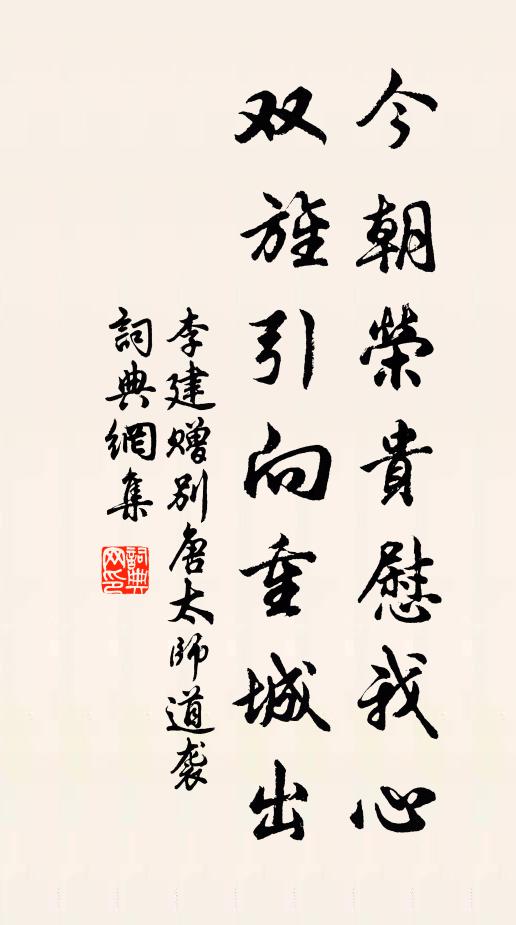 今朝榮貴慰我心
双旌引向重城出
李建贈别唐太師道袭
詞典網集
詞典网印